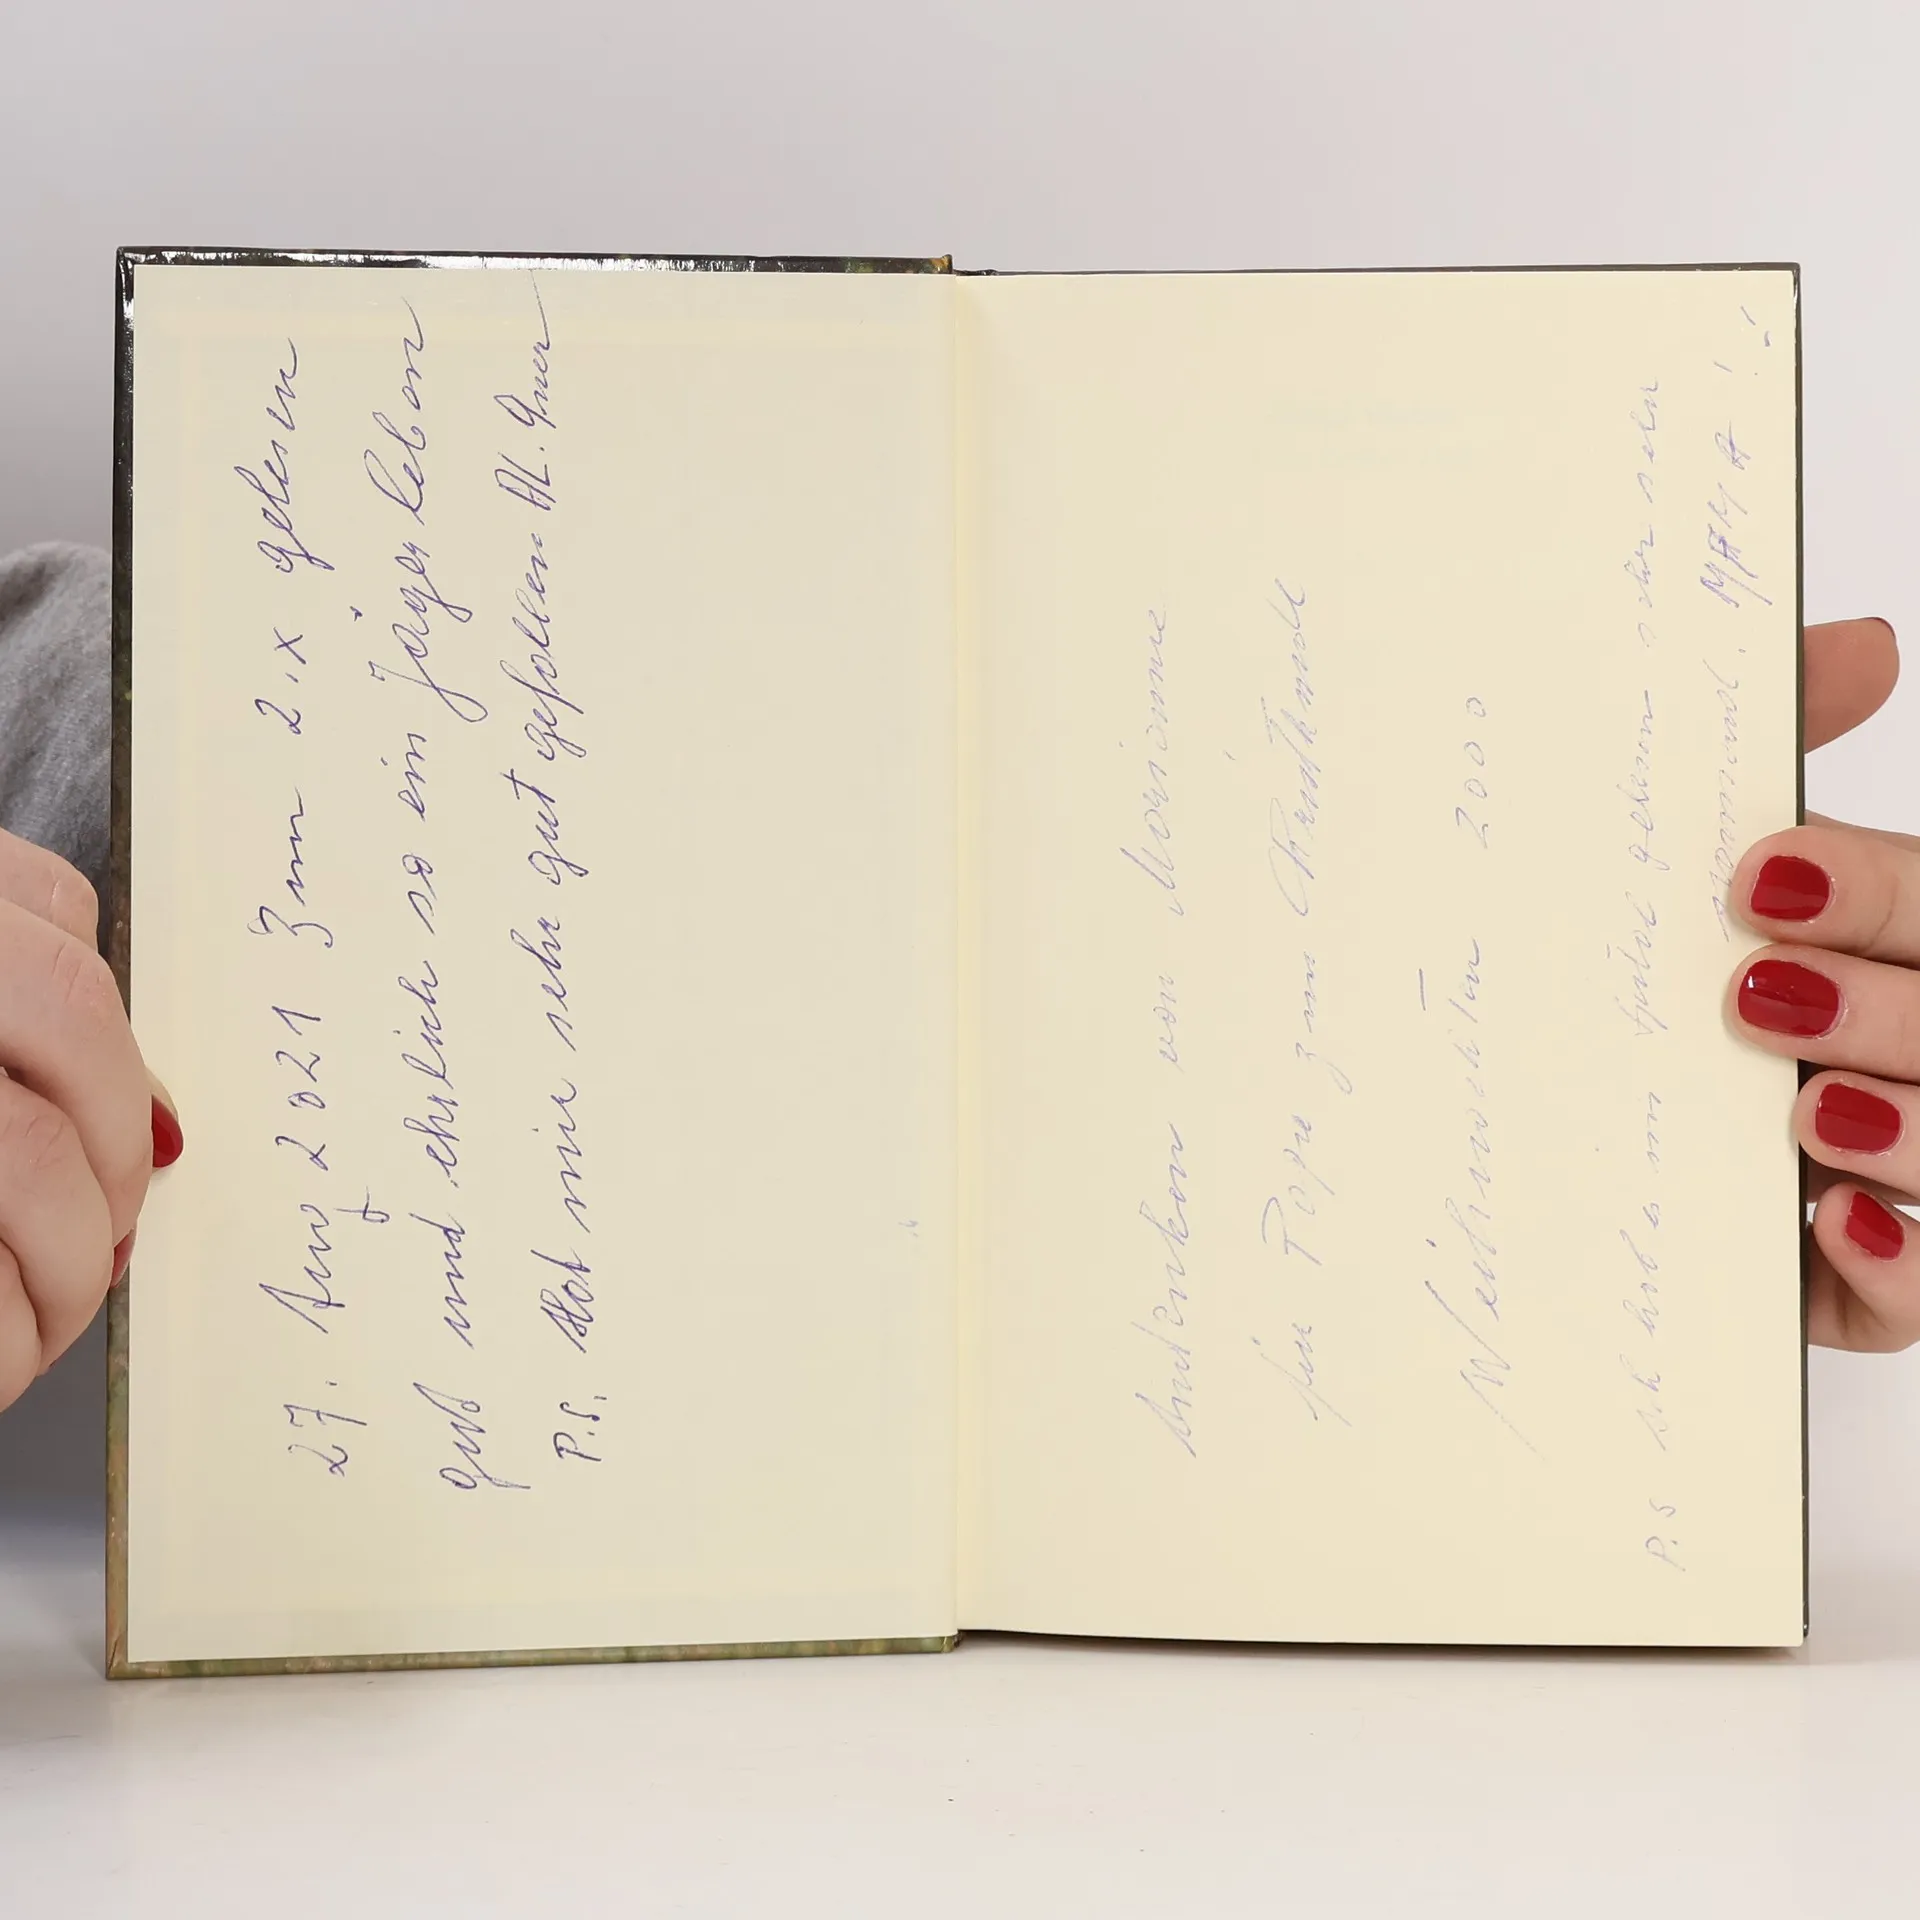 27. Aug 2021 zum 2.x gelesen
gut und ehrlich so ein Jägerleben
P.S. Hat mir sehr gut gefallen
Andenken von Marianne
für Papa zum Christkindl
Weihnachten 2000
P.S ich hab es im Spital gelesen sehr
spannend. MAMA!!